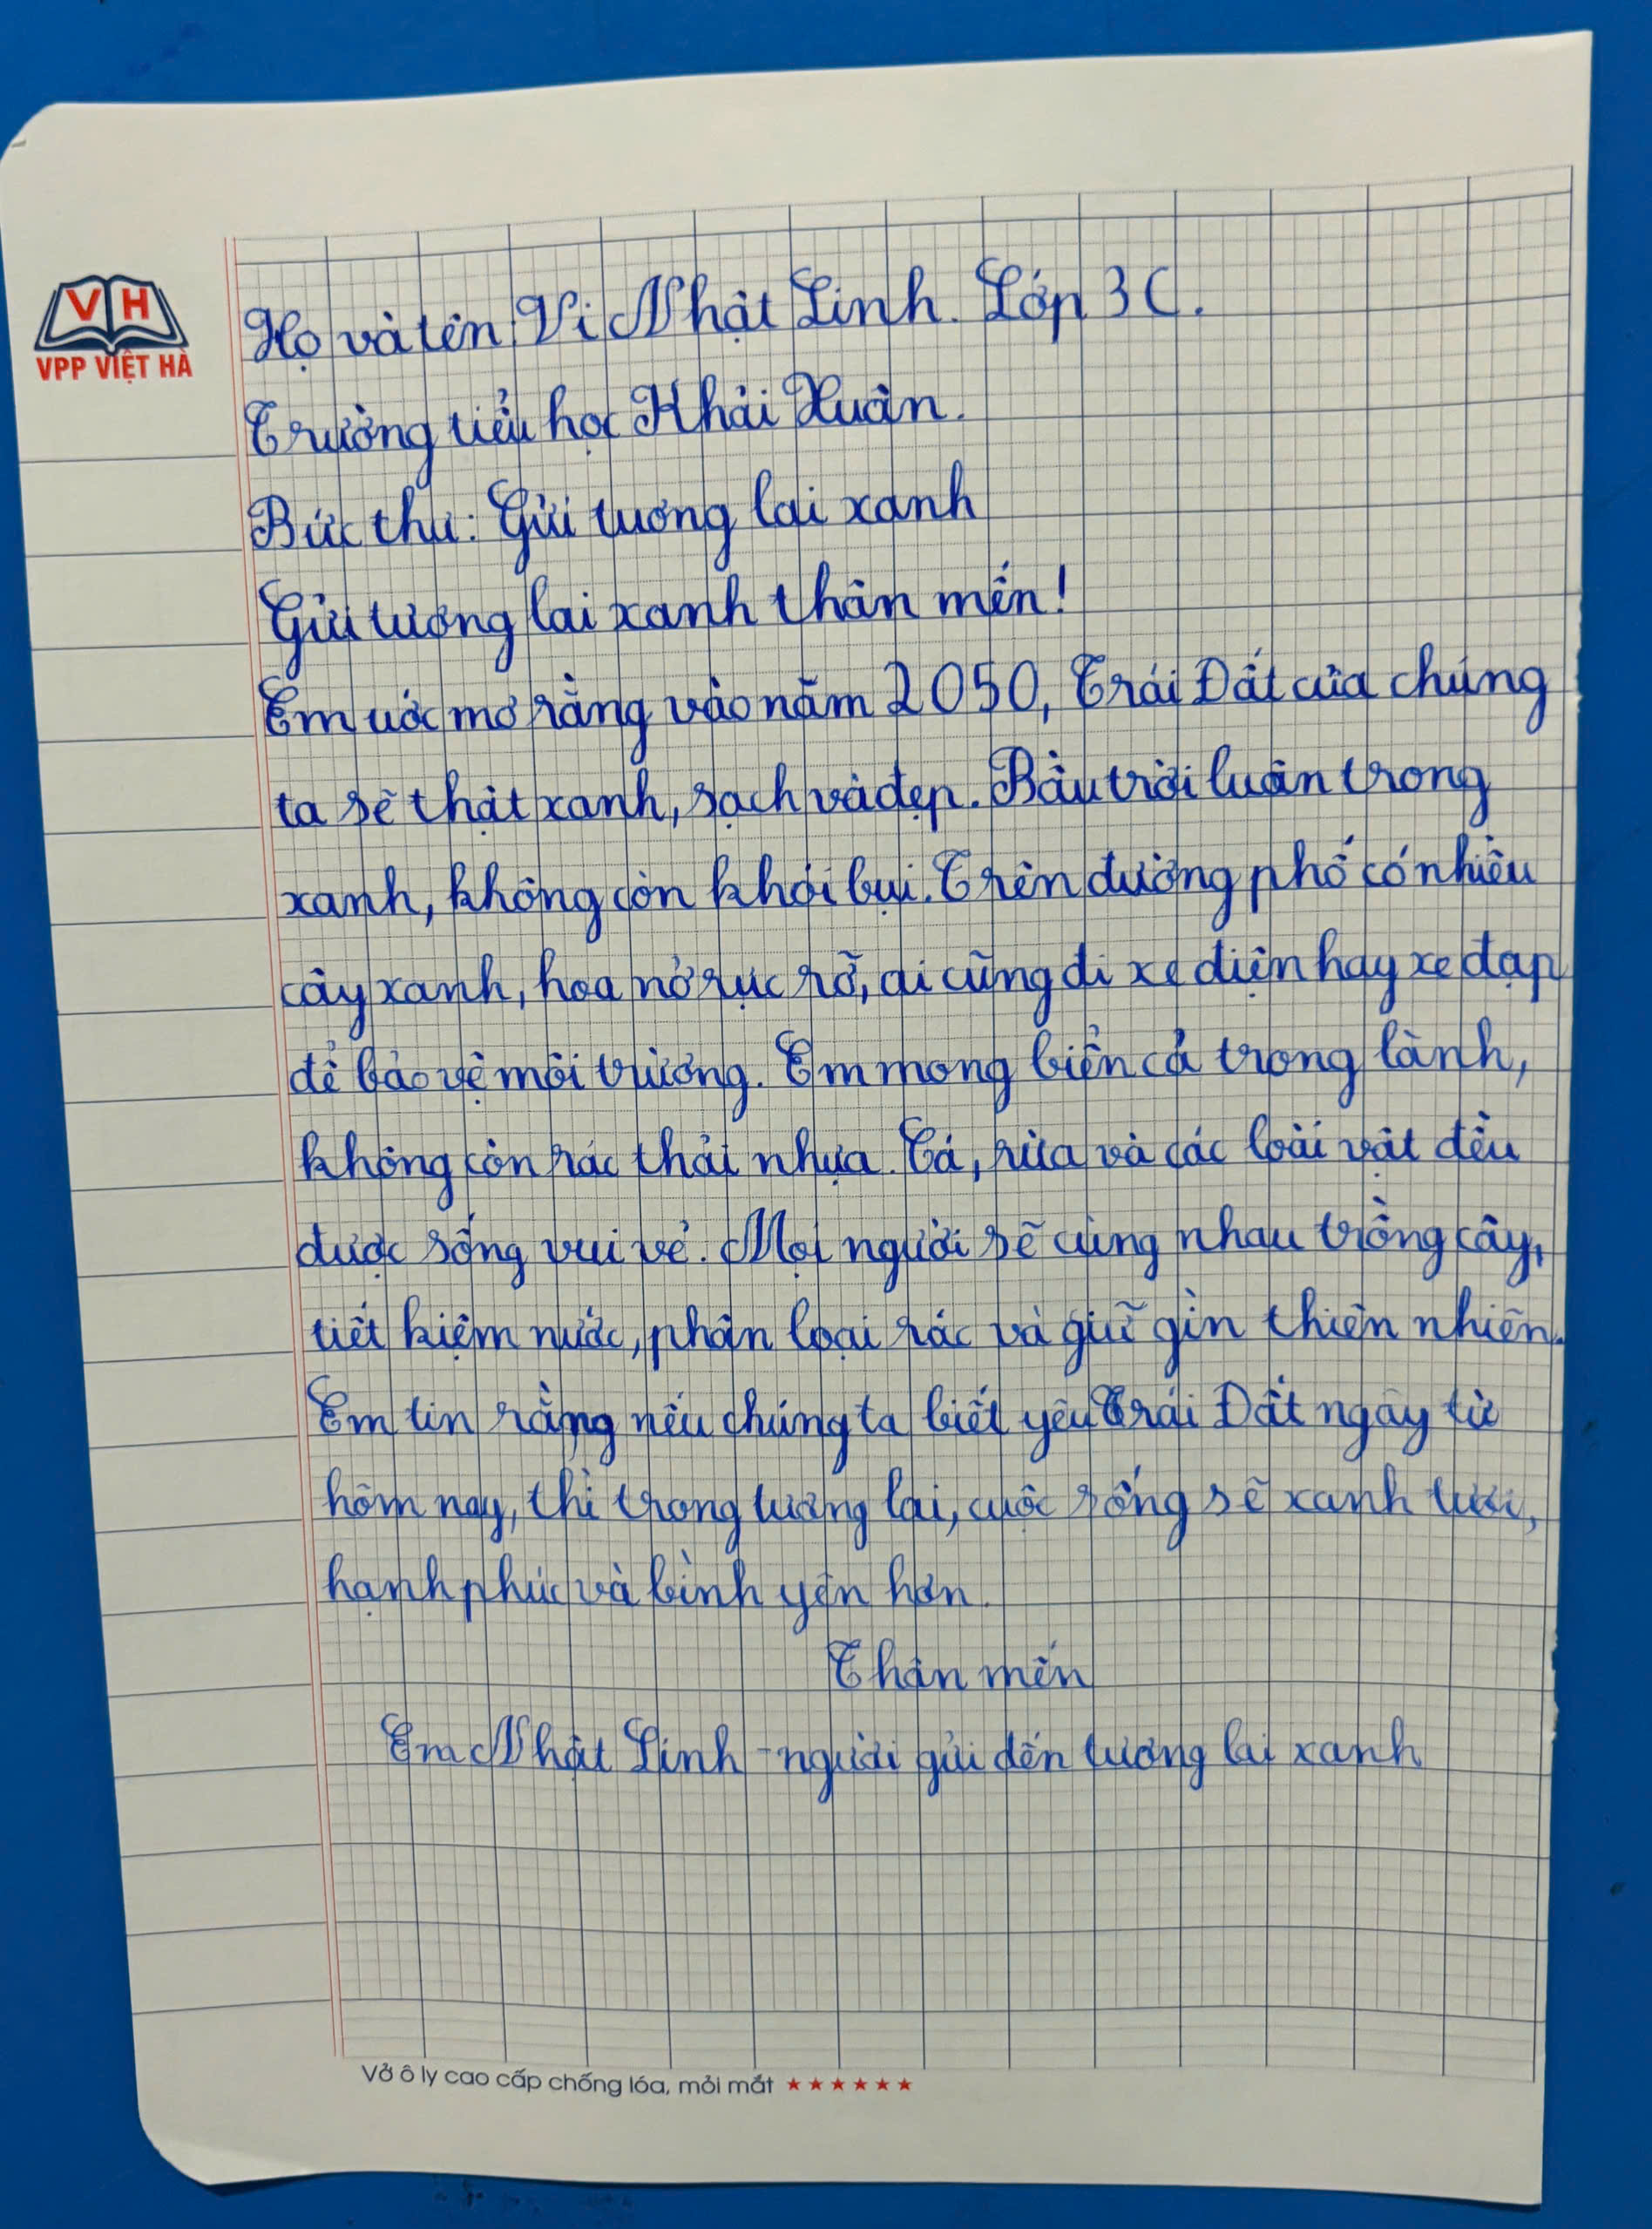 VH
VPP VIỆT HÀ
Họ và tên: Vi Nhật Linh. Lớp 3C.
Trường tiểu học Khải Xuân.
Bức thư: Gửi tương lai xanh
Gửi tương lai xanh thân mến!
Em ước mơ rằng vào năm 2050, Trái Đất của chúng
ta sẽ thật xanh, sạch và đẹp. Bầu trời luôn trong
xanh, không còn khói bụi. Trên đường phố có nhiều
cây xanh, hoa nở rực rỡ, ai cũng đi xe điện hay xe đạp
để bảo vệ môi trường. Em mong biển cả trong lành,
không còn rác thải nhựa. Cá, rùa và các loài vật đều
được sống vui vẻ. Mọi người sẽ cùng nhau trồng cây,
tiết kiệm nước, phân loại rác và giữ gìn thiên nhiên.
Em tin rằng nếu chúng ta biết yêu Trái Đất ngay từ
hôm nay, thì trong tương lai, cuộc sống sẽ xanh tươi,
hạnh phúc và bình yên hơn.
Thân mến
Em Nhật Linh - người gửi đến tương lai xanh
Vở ô ly cao cấp chống lóa, mỏi mắt ★★★★★★